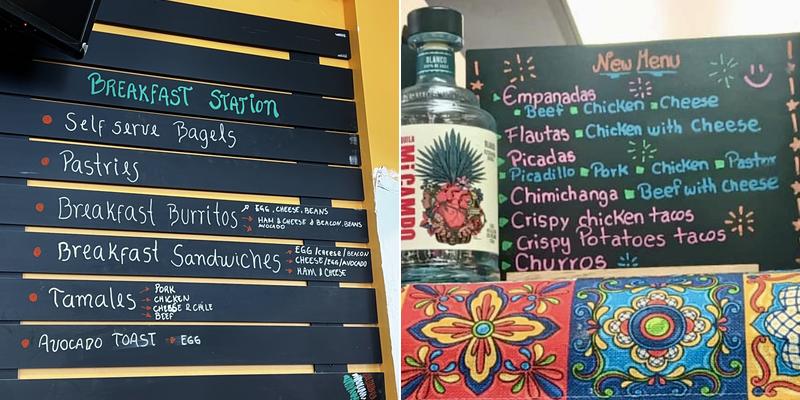 BREAKFAST STATION
Self serve Bagels
Pastries
Breakfast Burritos
EGG, CHEESE, BEANS
HAM & CHEESE & BEACON, BEANS
AVOCADO
Breakfast Sandwiches
EGG/cheese/BEACON
CHEESE/EGG/AVOCADO
HAM & CHEESE
TAMALES
PORK
CHICKEN
CHEESE & CHILE
BEEF
AVOCADO TOAST EGG
BLANCO
MiCAMPO
New Menu
Empanadas
Beef Chicken Cheese
Flautas Chicken with Cheese
Picadas
Picadillo Pork Chicken Pastor
Chimichanga Beef with cheese
Crispy chicken tacos
Crispy Potatoes tacos
Churros